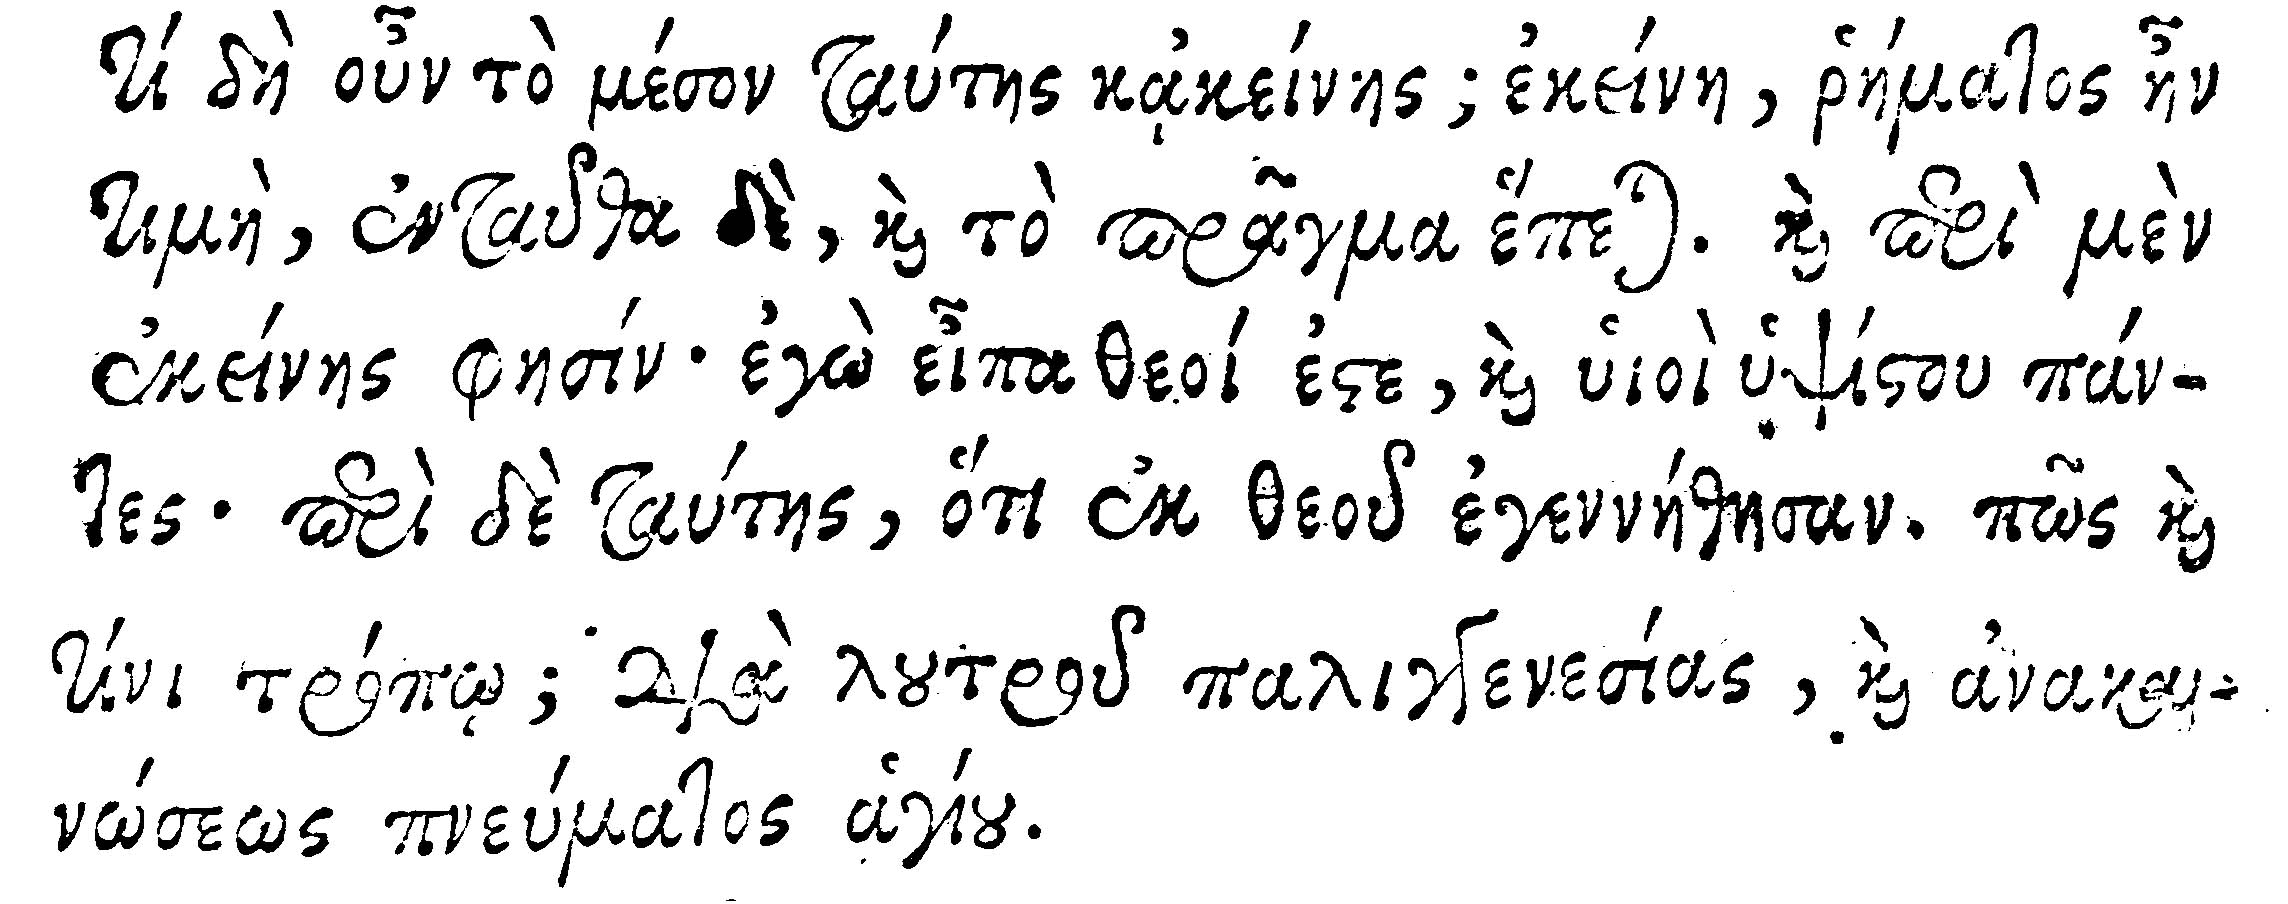 τί δὴ οὖν τὸ μέσον ταύτης κᾀκείνης; ἐκείνη, ῥήματος ἦν
τιμὴ, ἐνταῦθα δὲ, καὶ τὸ πρᾶγμα ἕπεται. καὶ περὶ μὲν
ἐκείνης φησίν· ἐγὼ εἶπα θεοί ἐστε, καὶ ὑιοὶ ὑψίστου πάν-
τες· περὶ δὲ ταύτης, ὅτι ἐκ θεοῦ ἐγεννήθησαν. πῶς καὶ
τίνι τρόπῳ; διὰ λουτροῦ παλιγγενεσίας, καὶ ἀνακαι-
νώσεως πνεύματος ἁγίου.